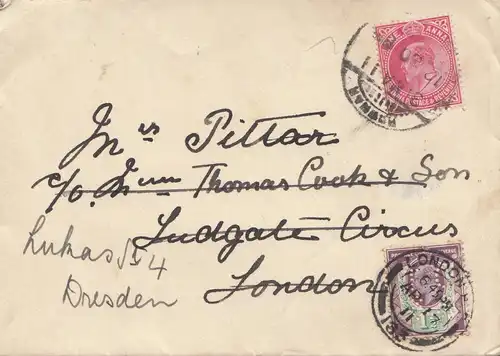 ONE ANNA
INDIA POSTAGE & REVENUE
Mrs Pittar
c/o Thomas Cook & Son
Ludgate Circus
London
Lukas St 4
Dresden
LONDON
AP 17
11